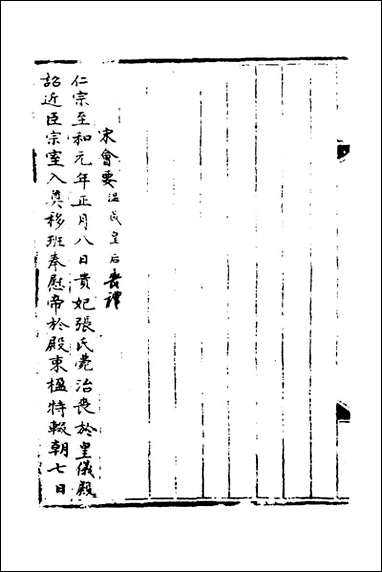 宋會要溫成皇后喪禮
仁宗至和元年正月八日貴妃張氏薨治喪於皇儀殿
詔近臣宗室入奠移班奉慰帝於殿東楹特輟朝七日